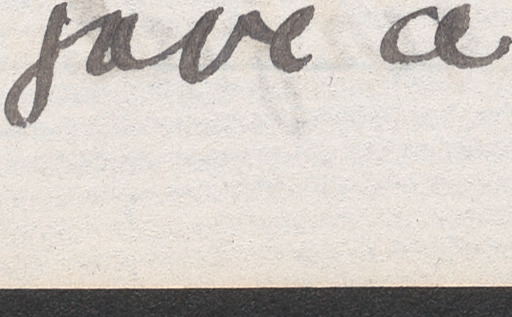 gave a